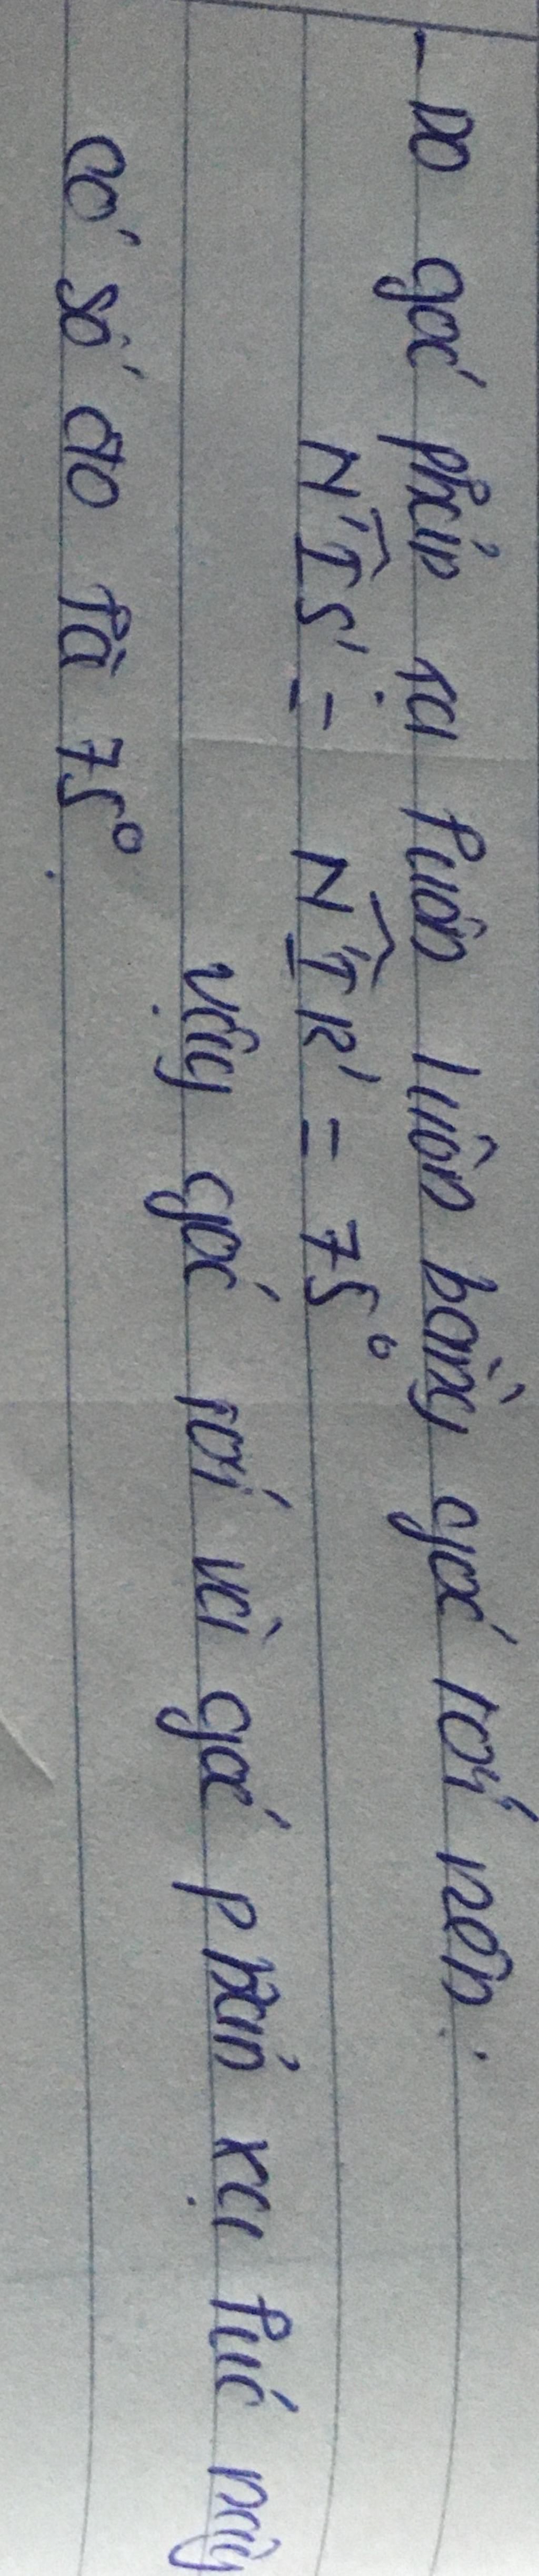 - Do góc phản xạ luôn luôn bằng góc tới nên:
N'IS' = N'IR' = 75°
Vậy góc tới và góc phản xạ lúc này
có số đo là 75°.